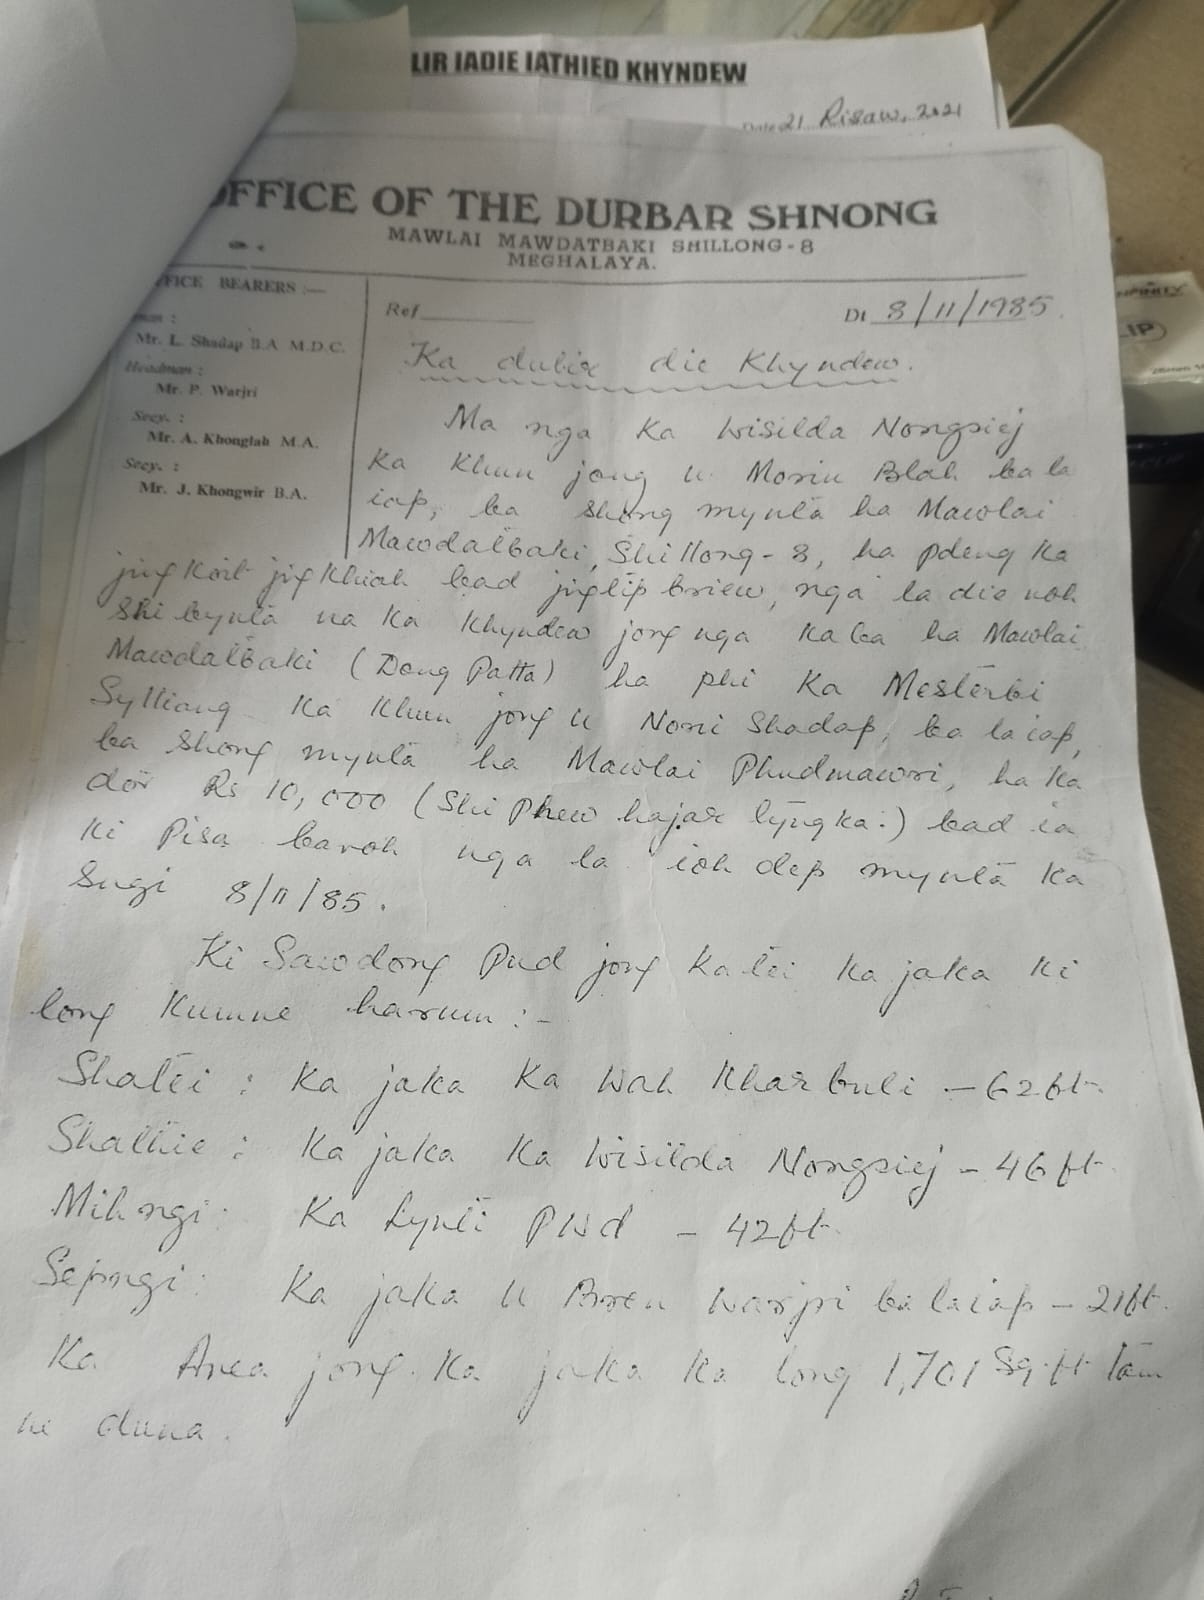 LIR IADIE IATHIED KHYNDEW
Date 21 Risaw, 2021
OFFICE OF THE DURBAR SHNONG
MAWLAI MAWDATBAKI SHILLONG-8
MEGHALAYA.
FICE BEARERS :—
man :
Mr. L. Shadap B.A M.D.C.
Headman :
Mr. P. Warjri
Secy. :
Mr. A. Khonglah M.A.
Secy. :
Mr. J. Khongwir B.A.
Ref
Dt 8/11/1985
Ka dulir die Khyndew.
Ma nga Ka Wisilda Nongsiej
Ka Khun jong u Morin Blah ba la
iap, ba shong mynta ha Mawlai
Mawdatbaki, Shillong-8, ha pdeng ka
jingkoit jingkhiah bad jingtip briew, nga la die noh
shi bynta na ka Khyndew jong nga kaba ha Mawlai
Mawdatbaki (Dong Patta) ha phi Ka Mesterbi
Sylliang Ka Khun jong u Nori Shadap, ba la iap,
ba shong mynta ha Mawlai Phudmawri, ha ka
dor Rs 10,000 (Shi Phew hajar lyngka:) bad ia
ki Pisa baroh nga la ioh dep mynta ka
Sngi 8/11/85.
Ki Sawdong Pud jong katei ka jaka ki
long kumne harum :-
Shatei : Ka jaka Ka Wah Kharbuli - 62ft.
Shathie : Ka jaka Ka Wisilda Nongsiej - 46ft.
Mihngi : Ka Lynti PWD - 42ft.
Sepngi : Ka jaka U Bren Warjri ba la iap - 21ft.
Ka Area jong ka jaka ka long 1,701 Sq.ft tam
ne duna.